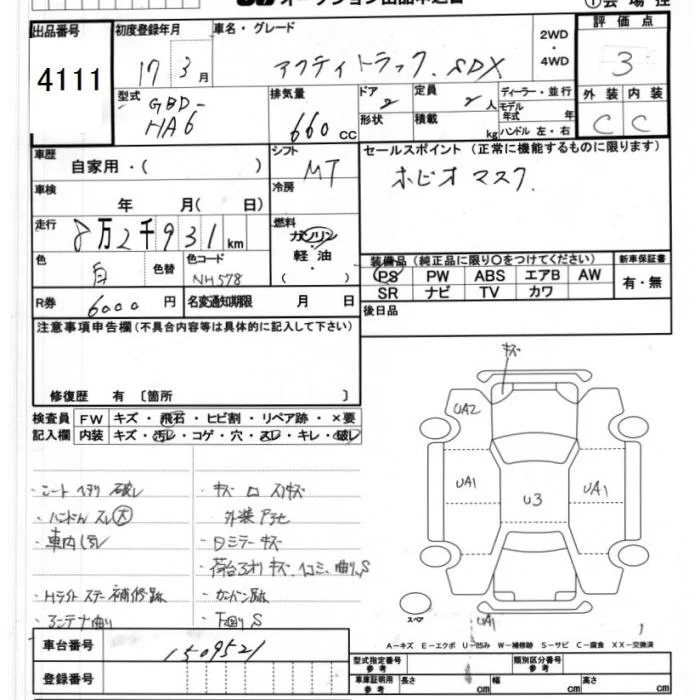 オークション出品申込書
出品番号
4111
初度登録年月
17 3月
車名・グレード
アクティトラック SDX
2WD
・
4WD
評価点
3
外装 内装
C C
型式
GBD-
HA6
排気量
660 cc
ドア 2
形状
定員 2 人
積載 kg
ディーラー・並行
モデル年式 年
ハンドル 左・右
車歴
自家用・( )
シフト
MT
冷房
車検
年 月( 日)
走行
8万2千931km
燃料
ガソリン
軽油
( )
色
白
色替
色コード
NH578
R券
6000円
名変通知期限 月 日
セールスポイント (正常に機能するものに限ります)
ホビオ マスク
装備品 (純正品に限り○をつけてください)
PS PW ABS エアB AW
SR ナビ TV カワ
新車保証書
有・無
後日品
注意事項申告欄(不具合内容等は具体的に記入して下さい)
修復歴 有 〔箇所 〕
検査員
記入欄
FW キズ・飛石・ヒビ割・リペア跡・×要
内装 キズ・汚レ・コゲ・穴・スレ・キレ・破レ
・シート ヘタリ 破レ
・ハンドル スレ 大
・車内 汚レ
・Hライト ステー 補修跡
・アンテナ曲り
・キズ ロ スリキズ
外装 アセ
・Dミラー キズ
・荷台 アオリ キズ、凹コミ、曲り、S
・カンバン跡
・下回り S
キズ
UA2
UA1
U3
UA1
UA1
スペア
A-キズ E-エクボ U-凹み W-補修跡 S-サビ C-腐食 XX-交換済
車台番号
1509521
登録番号
型式指定番号
参考
類別区分番号
参考
車庫証明用
参考
長さ cm
幅 cm
高さ cm